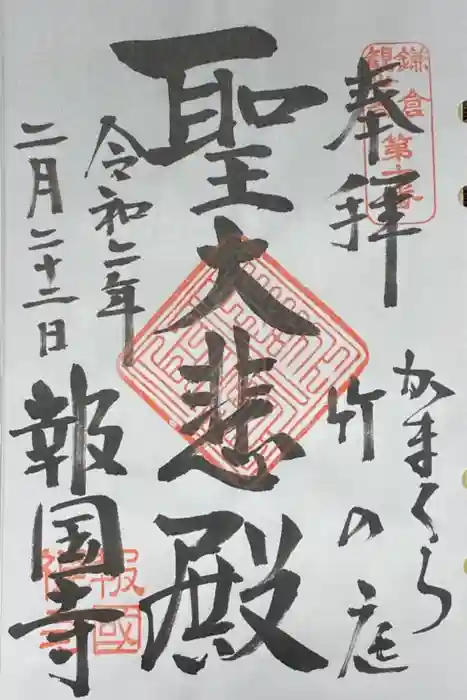 奉拝
鎌倉
観音
第十番
かまくら
竹の庭
聖大悲殿
令和二年
二月二十三日
報国寺
報國